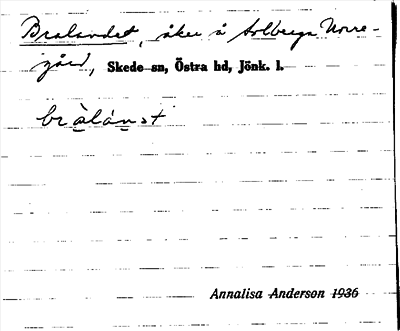 Bralandet, åker å Solberga Norre-
gård, Skede sn, Östra hd, Jönk. l.
Annalisa Anderson 1936